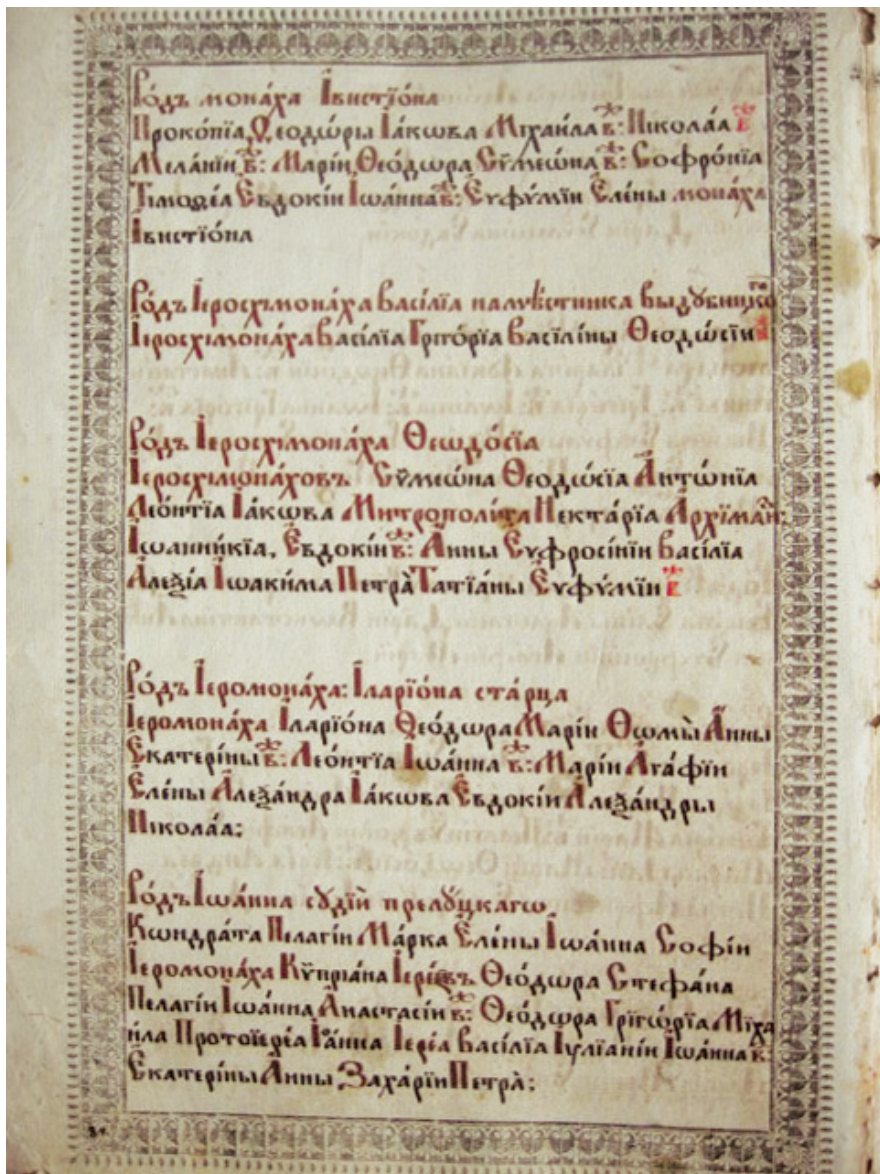 Ро́дъ мона́ха Іѵстїо́на
Проко́пїа Ѳео́дѡры Іа́кѡва Міхаи́ла в҃: Никола́а в҃
Мела́нїи в҃: Марі́и Ѳео́дѡра Сѷмеѡ́на в҃: Софро́нїа
Тімоѳе́а Евдокі́и Іѡа́нна в҃: Еѵфѵ́мїи Еле́ны мона́ха
Іѵстїо́на
Ро́дъ Іеросхмона́ха Васі́лїа намѣ́стника выдубицкго
Іеросхімона́ха Васі́лїа Григо́рїа Васїлі́ны Ѳеодѡ́сїи
Ро́дъ Іеросхімона́ха Ѳеѡдо́сїа
Іеросхімона́ховъ Сѷмеѡ́на Ѳеодѡ́сїа Анто́нїа
Лео́нтїа Іа́кѡва Митрополи́та Некта́рїа Архїман:
Іѡанни́кїа, Евдокі́и в҃: А́нны Еуфросі́нїи Васі́лїа
Алеѯі́а Іѡаки́ма Петра̀ Татїа́ны Еуфѵ́мїи в҃
Ро́дъ Іеромона́ха: Іларїо́на ста́рца
Іеромона́ха Іларїо́на Ѳео́дѡра Марі́и Ѳѡмы̀ А́нны
Екатері́ны в҃: Лео́нтїа Іѡа́нна в҃: Марі́и Ага́фїи
Еле́ны Алеѯа́ндра Іа́кѡва Евдокі́и Алеѯа́ндры
Никола́а:
Ро́дъ Іѡа́нна судїи̑ прелу́цкагѡ
Кѡндра́та Пелагі́и Ма́рка Еле́ны Іѡа́нна Софі́и
Іеромона́ха Кѷпрїа́на Іере́евъ Ѳео́дѡра Стефа́на
Пелагі́и Іѡа́нна Анастасі́и в҃: Ѳео́дѡра Грїгѡ́рїа Мїха
и́ла Протоїере́а Іѡа́нна Іере́а Васі́лїа Іулїані́и Іѡа́нна в҃:
Екатері́ны А́нны Заха́рїи Петра̀: